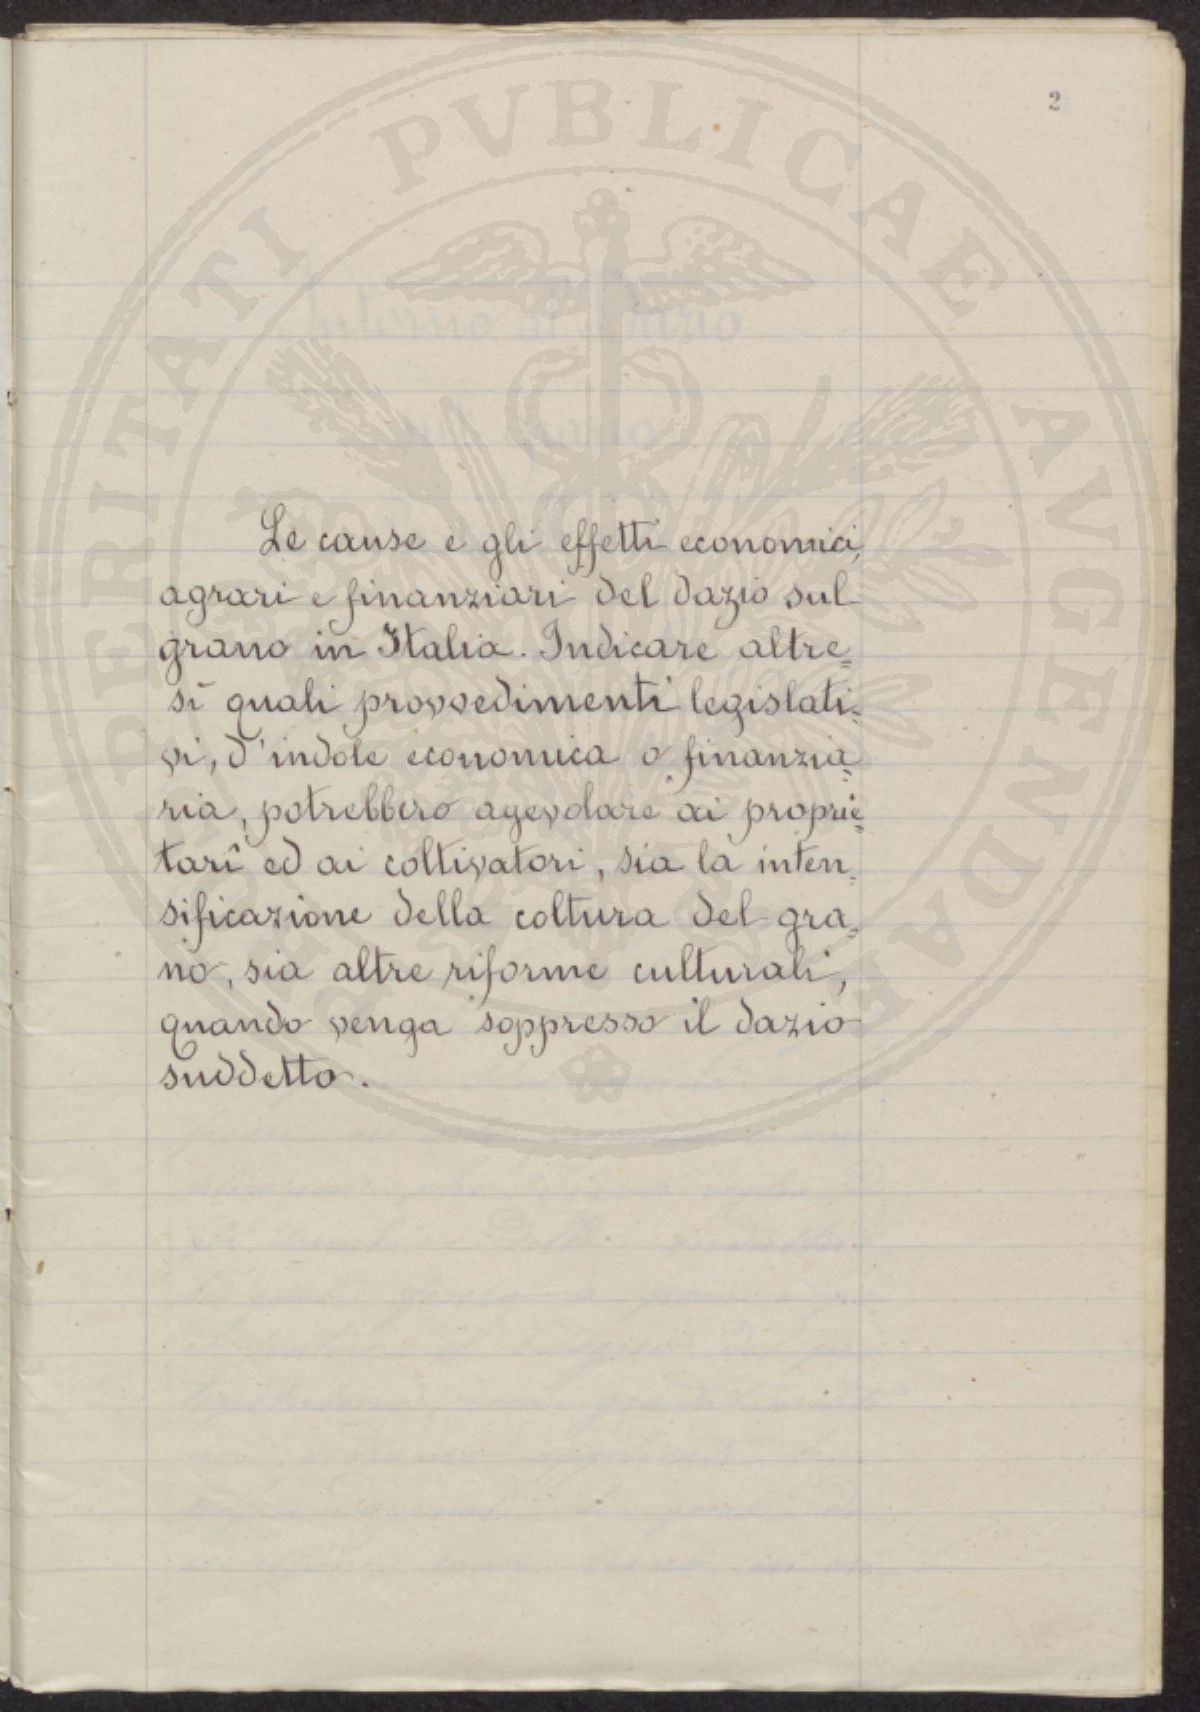 2
Le cause e gli effetti economici,
agrari e finanziari del dazio sul
grano in Italia. Indicare altre=
sì quali provvedimenti legislati=
vi, d'indole economica o finanzia=
ria, potrebbero agevolare ai proprie=
tarî ed ai coltivatori, sia la inten=
sificazione della coltura del gra=
no, sia altre riforme culturali,
quando venga soppresso il dazio
suddetto.
PROSPERITATI PVBLICAE AVGENDAE